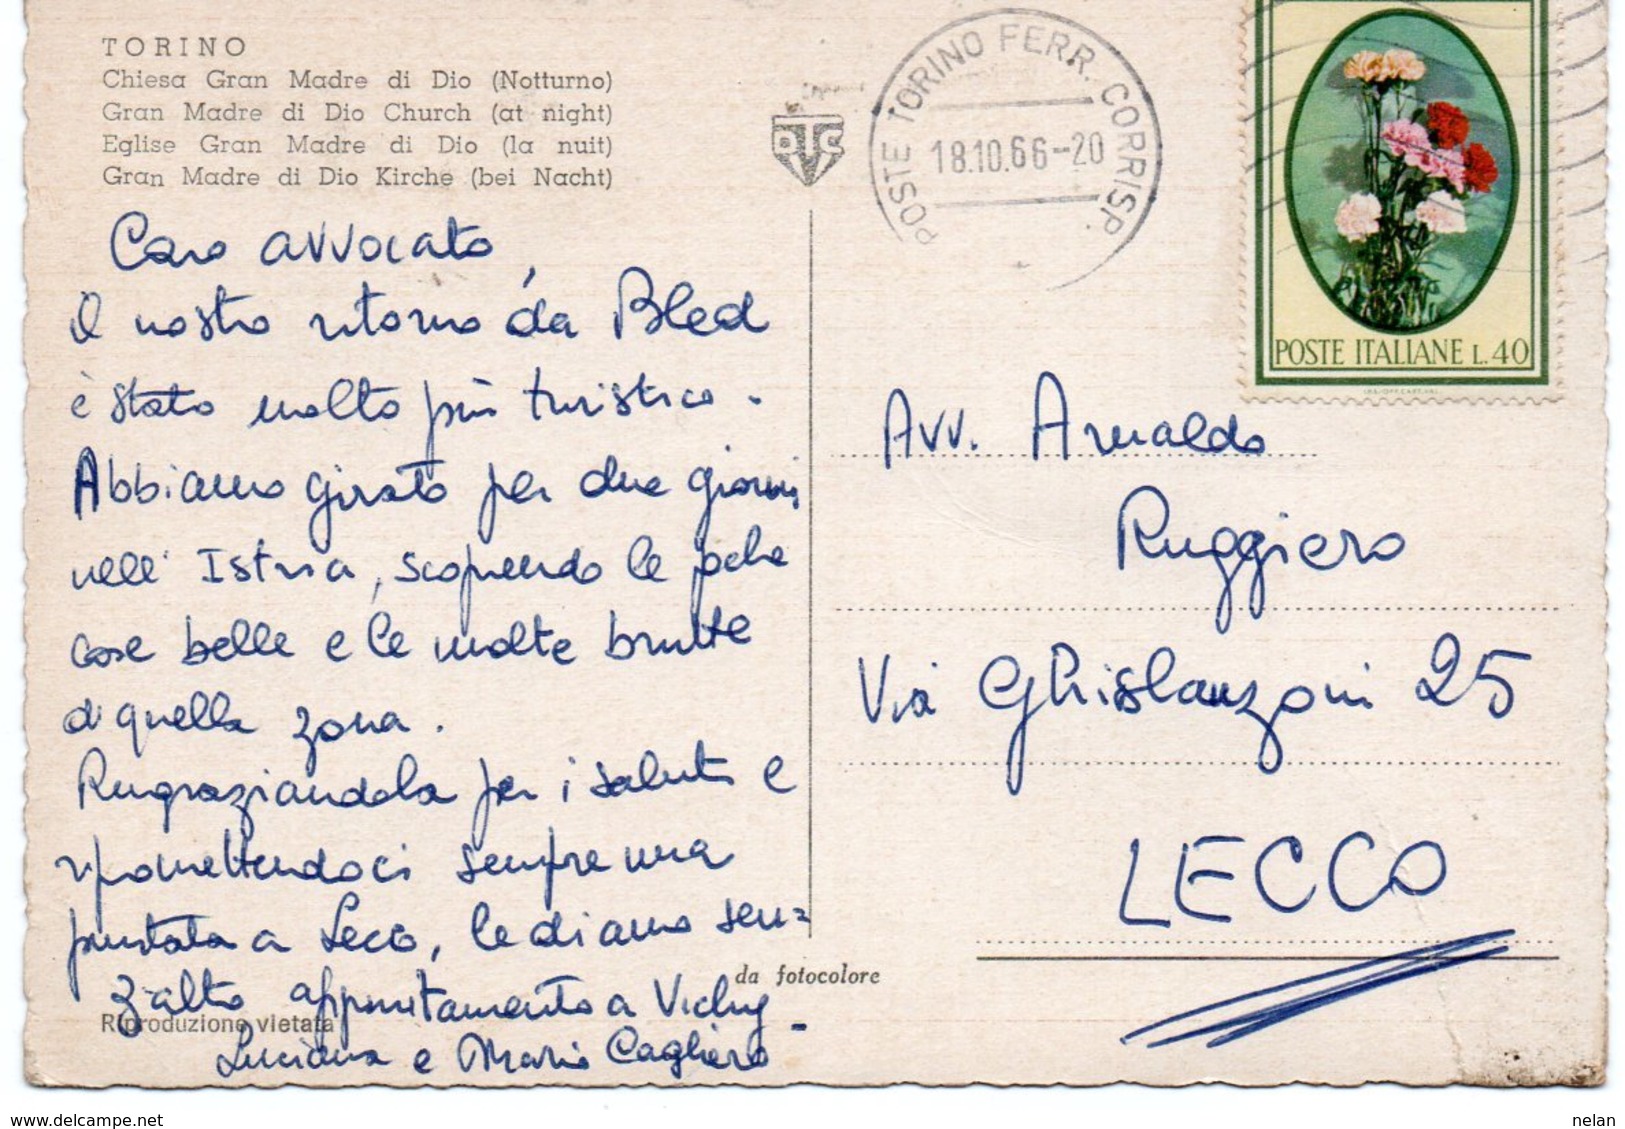 TORINO
Chiesa Gran Madre di Dio (Notturno)
Gran Madre di Dio Church (at night)
Eglise Gran Madre di Dio (la nuit)
Gran Madre di Dio Kirche (bei Nacht)
Caro avvocato
il nostro ritorno da Bled
è stato molto più turistico.
Abbiamo girato per due giorni
nell'Istria, scoprendo le poche
cose belle e le molte brutte
di quella zona.
Ringraziandola per i saluti e
ripromettendoci sempre una
puntata a Lecco, le diamo sen=
z'altro appuntamento a Vichy -
Luciana e Mario Cagliero
Riproduzione vietata
da fotocolore
POSTE TORINO FERR. CORRISP.
18.10.66-20
POSTE ITALIANE L.40
Avv. Arnaldo
Ruggiero
Via Ghislanzoni 25
LECCO
www.delcampe.net
nelan